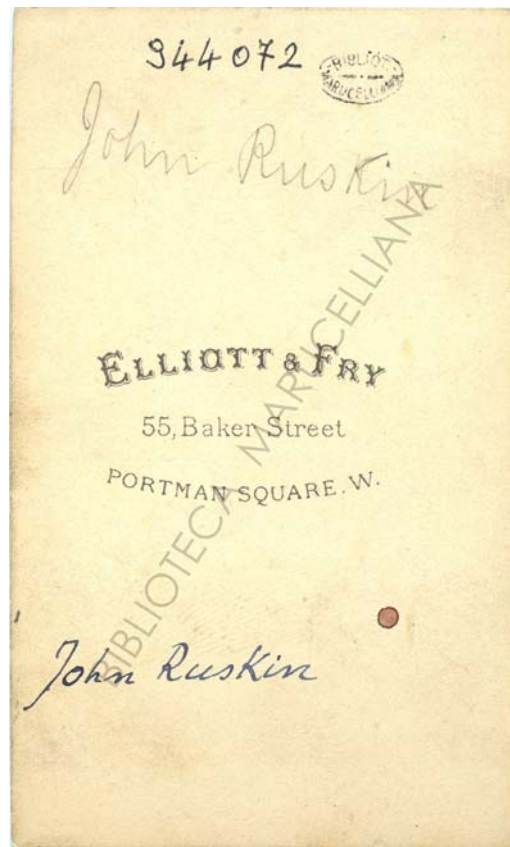 944072
BIBLIOT.
MARUCELLIANA
John Ruskin
ELLIOTT & FRY
55, Baker Street
PORTMAN SQUARE. W.
BIBLIOTECA MARUCELLIANA
John Ruskin